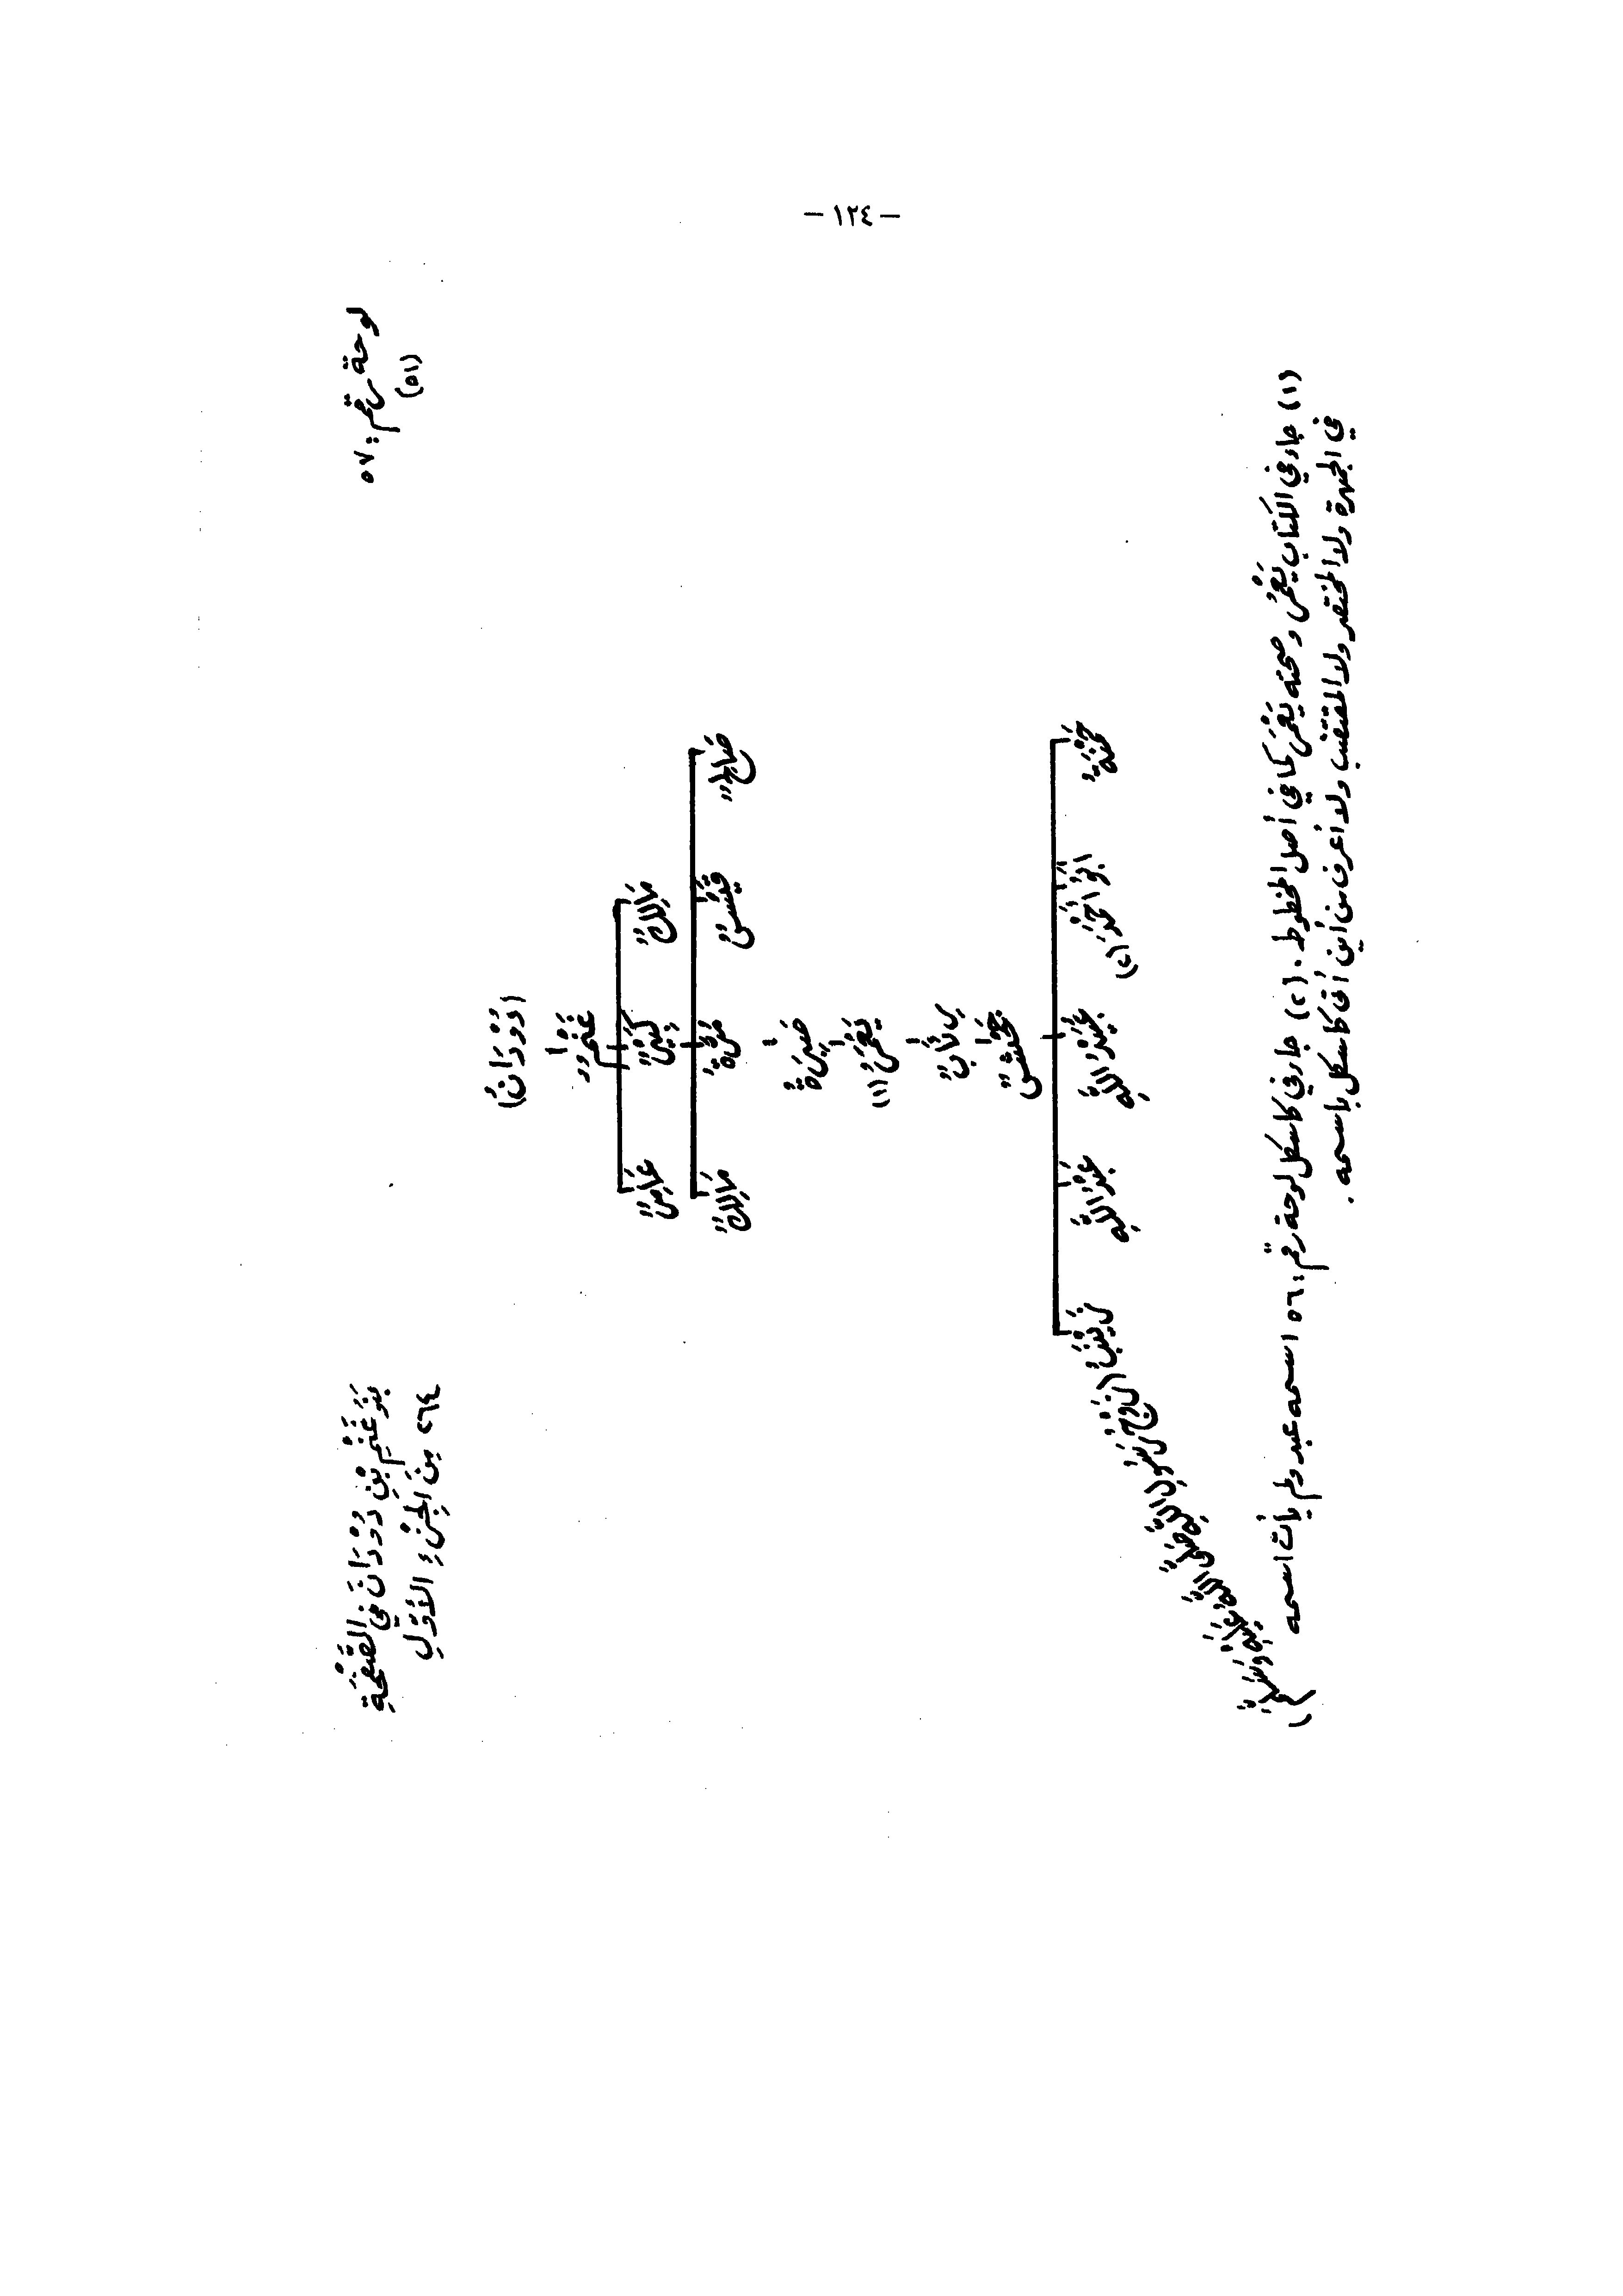 - ١٢٤ -
لوحة رقم: ٥٧
(٥١)
بَنُو غَنْمِ بْنِ دُوْدَانَ فِي الصَّفْحَةِ
٢٦٤ مِنَ الجُزْءِ الأَوَّلِ
(دُوْدَانُ)
غَنْمٌ
مَالِكٌ كَبِيْرٌ عَامِرٌ
صَالِحٌ قَيْسٌ مُرَّةُ مَالِكٌ
صَبِرَةُ
يَعْمَرُ (١)
رِئَابٌ
جَحْشٌ
حَمْنَةُ أَبُو أَحْمَدَ (٢) عُبَيْدُ اللَّهِ عَبْدُ اللَّهِ زَيْنَبُ (زَوْجُ رَسُولِ اللَّهِ صَلَّى اللَّهُ عَلَيْهِ وَسَلَّمَ)
(١) جاء في الكتاب يَعْمُر وصحته يَعْمَر كما في أصل المخطوط. (٢) جاء في كاسكل لوحة رقم: ٥٦ اسمه عبد ولم يأت اسمه
في الجمهرة ولا المختصر ولا المقتضب ولا أعرف من أين أتى كاسكل باسمه.